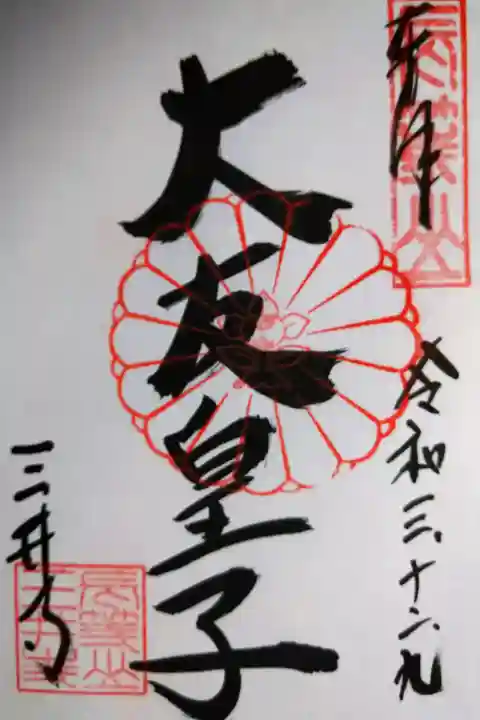 奉拝
令和三、十二、九
大友皇子
三井寺
長等山